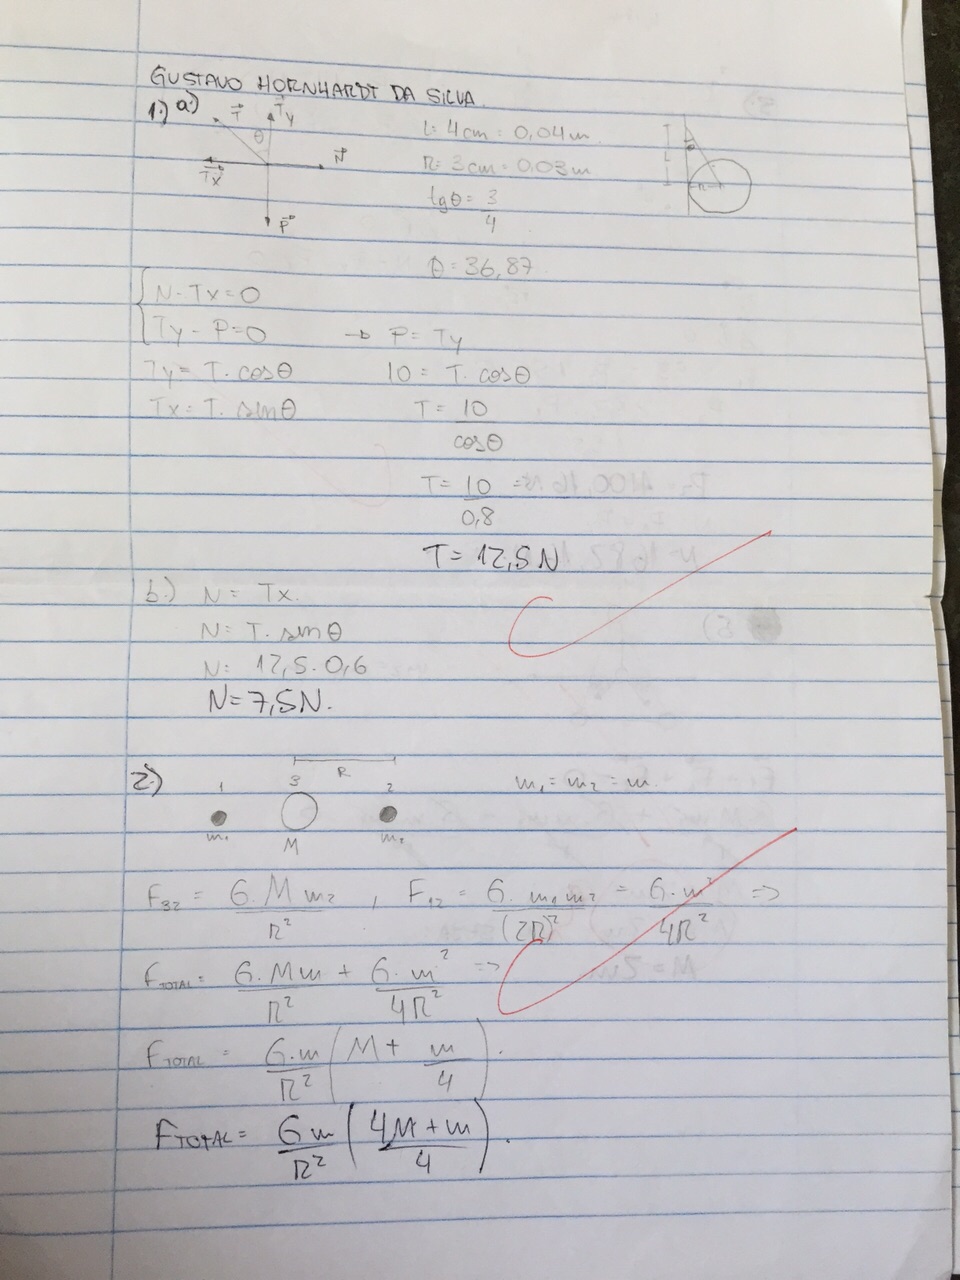 GUSTAVO HORNHARDT DA SILVA
1.) a.) T⃗ T⃗y θ N⃗ T⃗x P⃗
L= 4cm = 0,04m
R= 3cm = 0,03m
tgθ = 3/4
θ = 36,87
N - Tx = 0
Ty - P = 0 → P = Ty
Ty = T. cosθ 10 = T. cosθ
Tx = T. senθ T = 10/cosθ
T = 10/0,8 =
T = 12,5N
b.) N = Tx.
N = T. senθ
N = 12,5. 0,6
N = 7,5N.
2.) 1 3 2 R m₁ = m₂ = m.
m₁ M m₂
F32 = G. M m₂/R² , F12 = G. m₁ m₂/(2R)² = G. m²/4R² =>
FTOTAL = G. Mm/R² + G. m²/4R² =>
FTOTAL = G.m/R² (M + m/4).
FTOTAL = Gm/R² (4M + m/4).